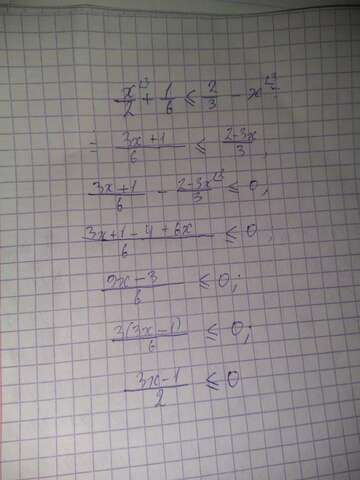 x/2^⌊3 + 1/6 ≤ 2/3 − x^⌊3
= (3x+1)/6 ≤ (2-3x)/3;
(3x+1)/6 − (2-3x^⌊3)/3 ≤ 0;
(3x+1−4+6x)/6 ≤ 0;
(9x−3)/6 ≤ 0;
3(3x−1)/6 ≤ 0;
(3x-1)/2 ≤ 0